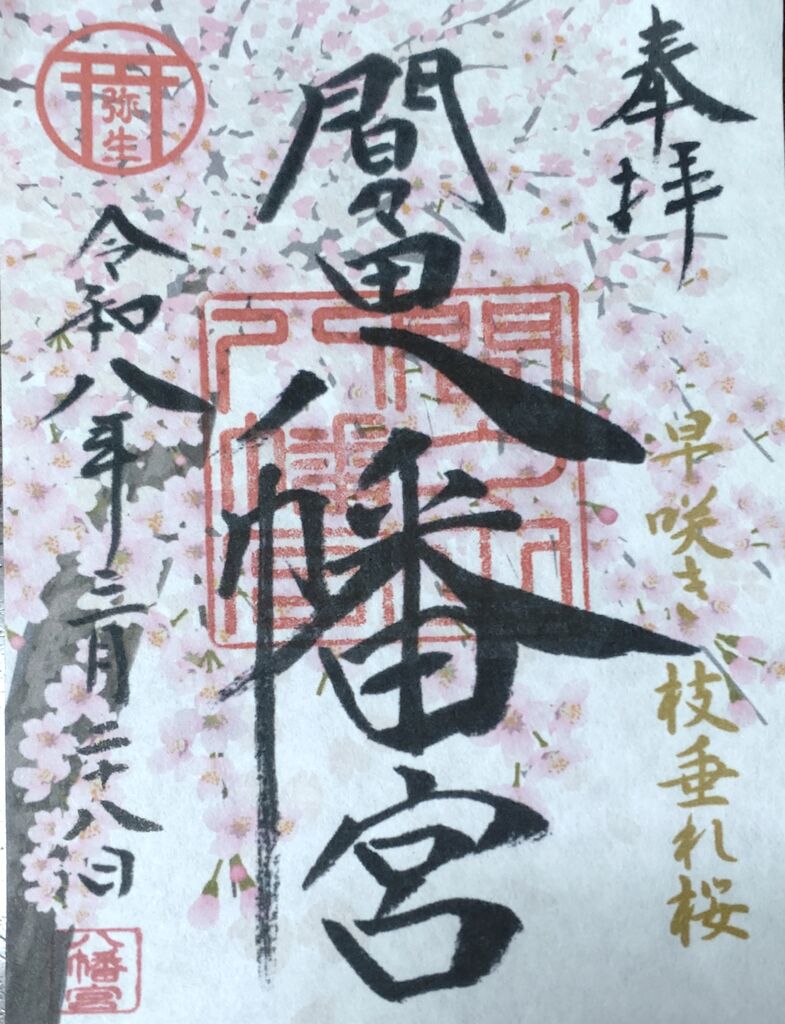 奉拝
早咲き 枝垂れ桜
間々田八幡宮
弥生
令和八年三月二十八日
八幡宮